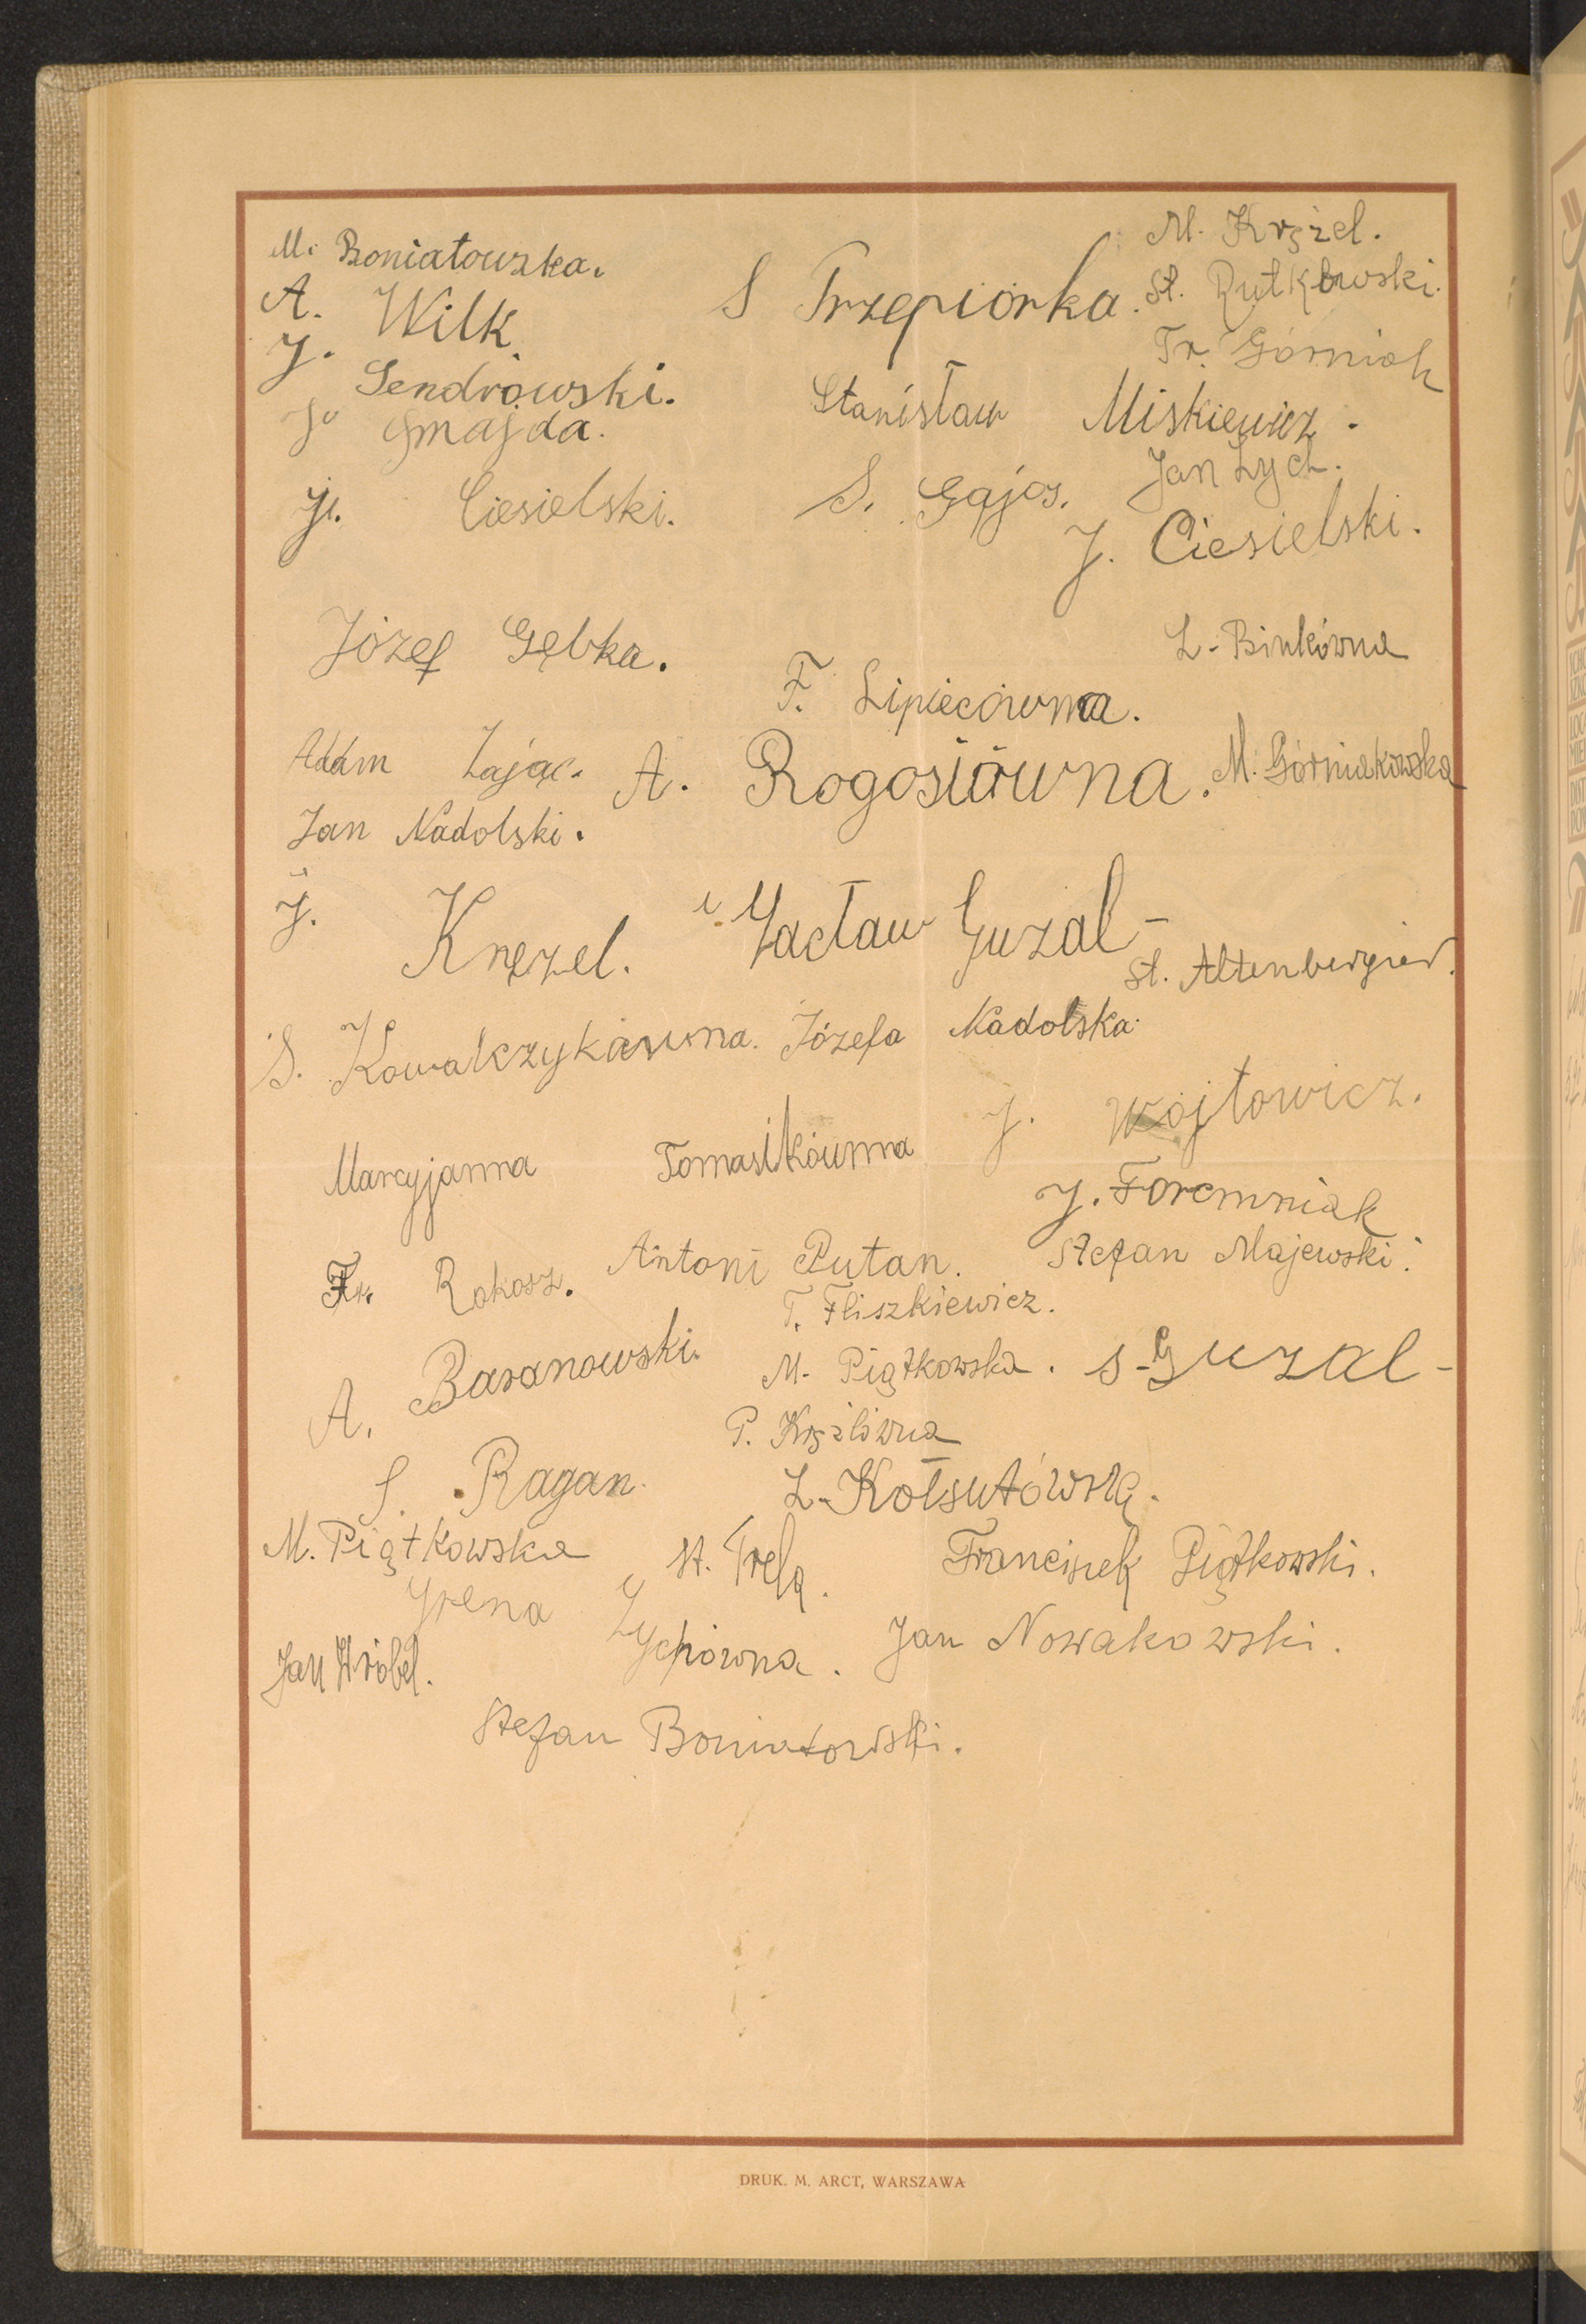 M. Boniatowska.
M. Krężel.
A. Wilk.
S Trzepiórka.
St. Rutkowski.
J. Sendrowski.
Fr. Górniak
J. Gmajda.
Stanisław Miskiewicz.
Jan Zych.
J. Ciesielski.
S. Gajos.
J. Ciesielski.
Józef Gębka.
Z. Binkówna
F. Lipiecówna.
Adam Zając.
A. Rogosiówna.
M. Górniakowska
Jan Nadolski.
J. Krezel.
Wacław Guzal
St. Altenbergier.
S. Kowalczykówna.
Józefa Nadolska
J. Wójtowicz.
Marcyjanna Tomasikówna
J. Foremniak
Fr. Rokosz.
Antoni Putan.
Stefan Majewski.
T. Fliszkiewicz.
A. Baranowski.
M. Piątkowska.
S. Guzal
P. Krężlówna
S. Ragan.
Z. Kołsutówna.
M. Piątkowska
St. Trela.
Franciszek Piątkowski.
Yrena Zychówna.
Jan Nowakowski.
Jan Wróbel.
Stefan Boniatowski.
DRUK. M. ARCT, WARSZAWA